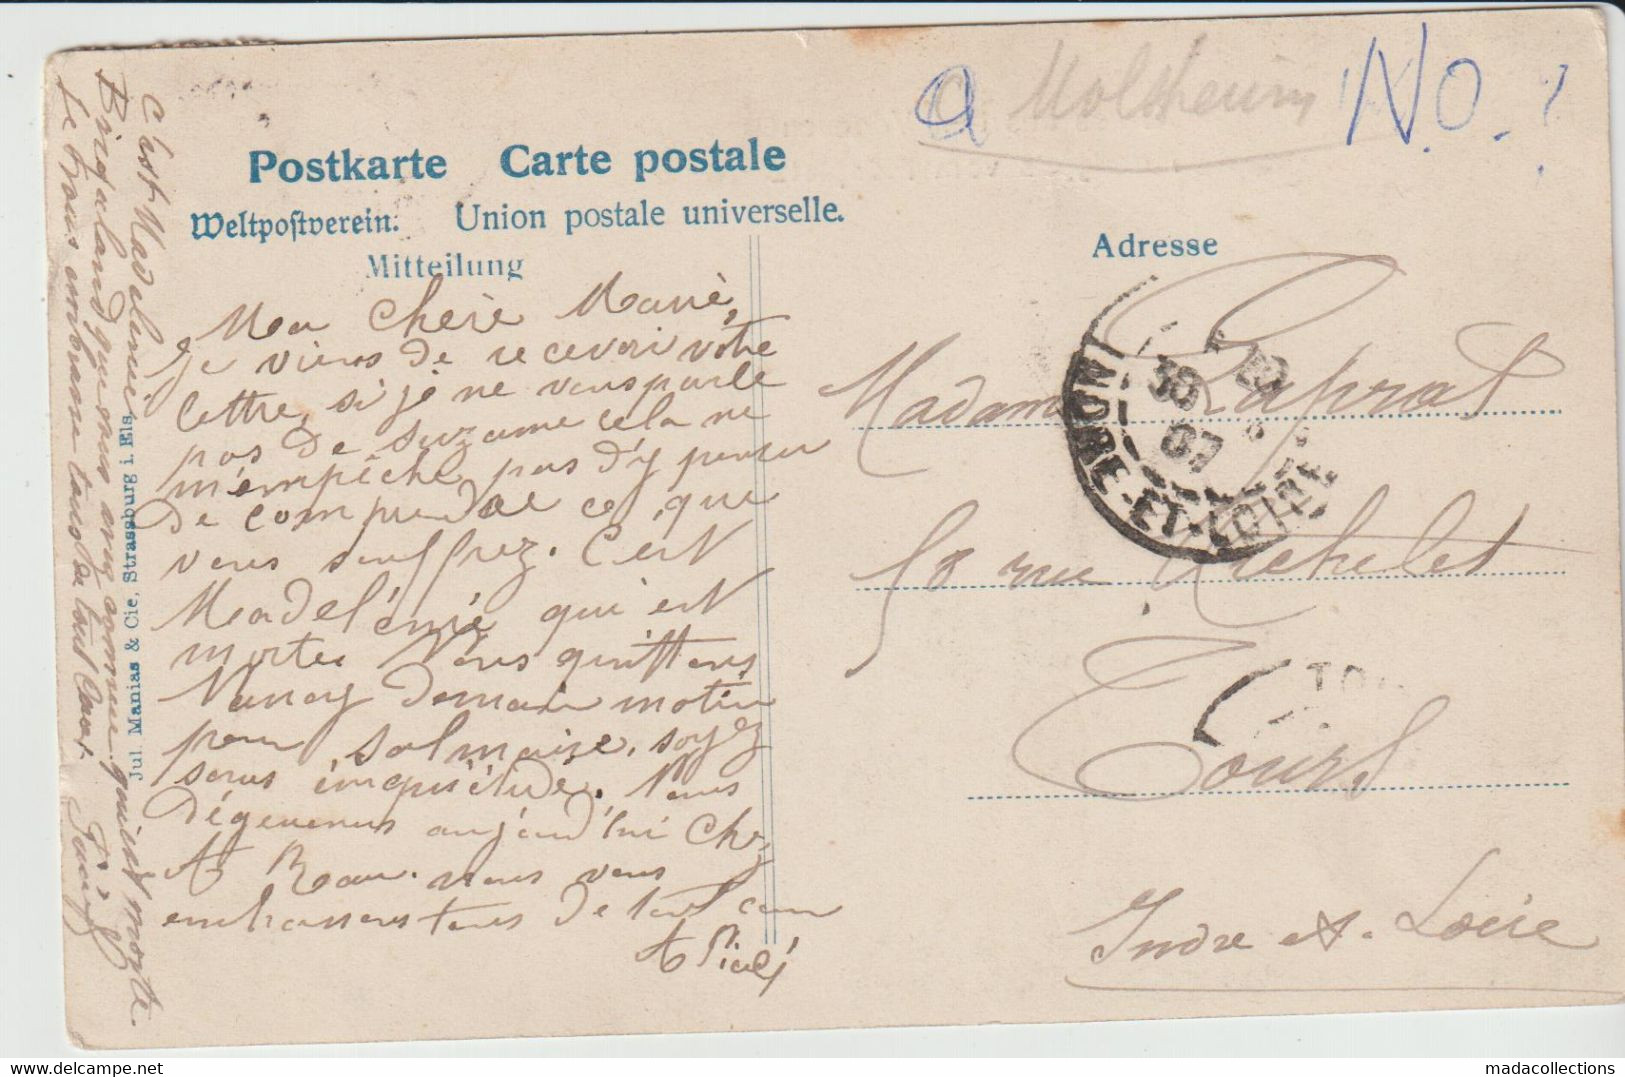 a Molsheim NO.?
Postkarte Carte postale
Weltpostverein. Union postale universelle.
Mitteilung
Adresse
Ma Chère Marie,
je viens de recevoir votre
lettre, si je ne vous parle
pas de Suzanne cela ne
m'empêche pas d'y penser
de comprendre ce que
vous souffrez. C'est
Madeleine qui est
morte. Nous quittons
Nancy demain matin
pour Salmaise, soyez
sans inquiétude. Nous
déjeunons aujourd'hui chez
A Beau. nous vous
embrassons tous de tout cœur
A
c'est Madeleine
Bingaland que nous avons connue qui est morte.
Je vous embrasse tous de tout cœur.
Jul. Manias & Cie, Strassburg i. Els.
Madame Laprat
58 rue Michelet
Tours
Indre et Loire
30
07
INDRE-ET-LOIRE
TO
delcampe.net
madacollections